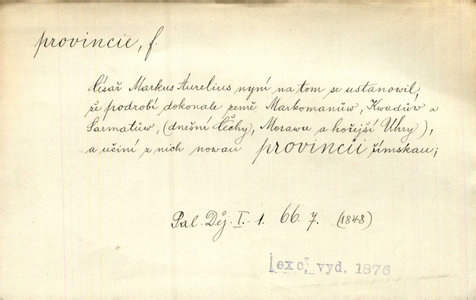 provincie, f.
Císař Markus Aurelius nyní na tom se ustanovil,
že podrobí dokonale země Markomanůw, Kwadůw a
Sarmatůw, (dnešní Čechy, Morawu a hořejší Uhry),
a učiní z nich nowau provincii římskau;
Pal. Děj. I. 1. 66. 7. (1848)
[exc. vyd. 1876